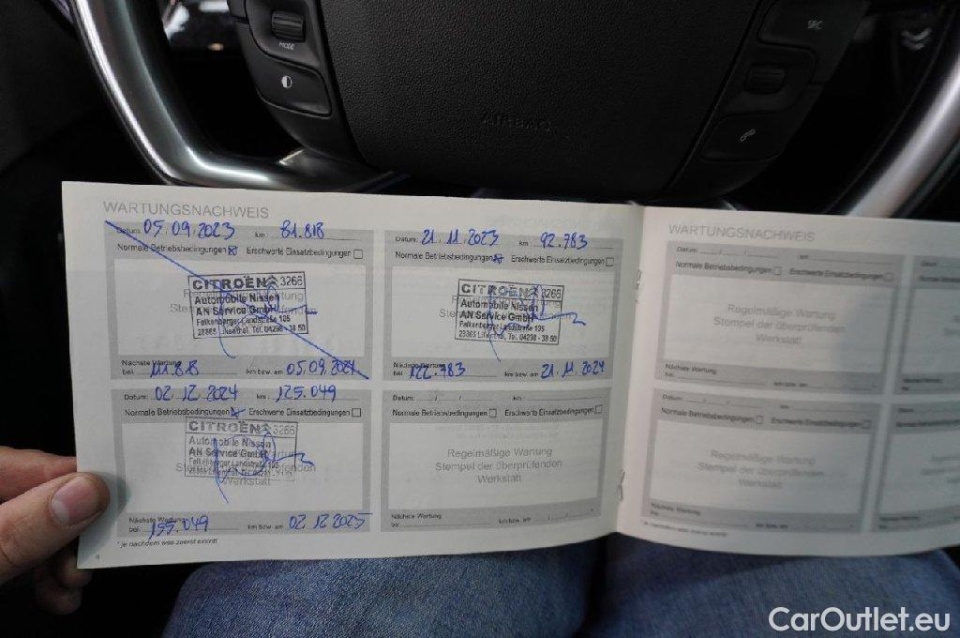 MODE
SRC
AIRBAG
WARTUNGSNACHWEIS
Datum: 05.09.2023 km 81.818
Normale Betriebsbedingungen Erschwerte Einsatzbedingungen
CITROËN 3266
Automobile Nissen
AN Service GmbH
Falkenberger Landstraße 105
28865 Lilienthal, Tel. 04298 - 38 50
Nächste Wartung
bei 111.818 km bzw. am 05.09.2024
Datum: 21.11.2023 km 92.783
Normale Betriebsbedingungen Erschwerte Einsatzbedingungen
CITROËN 3266
Automobile Nissen
AN Service GmbH
Falkenberger Landstraße 105
28865 Lilienthal, Tel. 04298 - 38 50
Nächste Wartung
bei 122.783 km bzw. am 21.11.2024
Datum: 02.12.2024 km 125.049
Normale Betriebsbedingungen Erschwerte Einsatzbedingungen
CITROËN 3266
Automobile Nissen
AN Service GmbH
Falkenberger Landstraße 105
Werkstatt
Nächste Wartung
bei 155.049 km bzw. am 02.12.2025
Datum: / / km
Normale Betriebsbedingungen Erschwerte Einsatzbedingungen
Regelmäßige Wartung
Stempel der überprüfenden
Werkstatt
Nächste Wartung
bei km bzw. am
* je nachdem was zuerst eintritt
4
WARTUNGSNACHWEIS
Datum: / / km
Normale Betriebsbedingungen Erschwerte Einsatzbedingungen
Regelmäßige Wartung
Stempel der überprüfenden
Werkstatt
Nächste Wartung
bei km bzw. am
Datum: / / km
Normale Betriebsbedingungen Erschwerte Einsatzbedingungen
Regelmäßige Wartung
Stempel der überprüfenden
Werkstatt
Nächste Wartung
bei km bzw. am
* je nachdem was zuerst eintritt
CarOutlet.eu